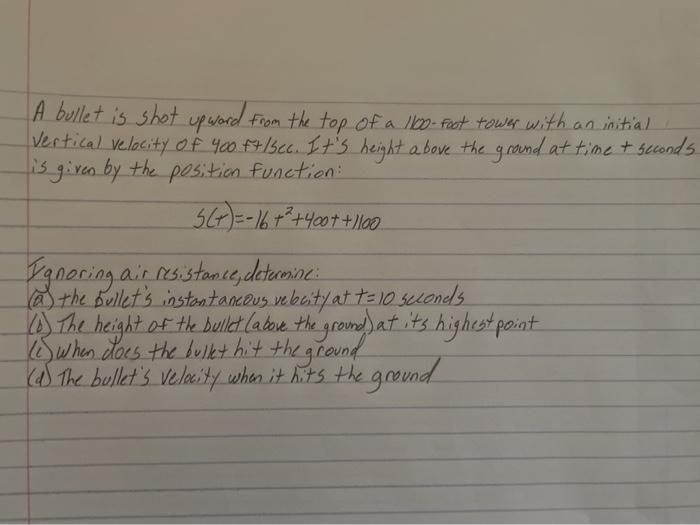 A bullet is shot upward from the top of a 1100-foot tower with an initial
vertical velocity of 400 ft/sec. It's height above the ground at time t seconds
is given by the position function:
s(t)=-16t²+400t+1100
Ignoring air resistance, determine:
(a) the bullet's instantaneous velocity at t=10 seconds
(b) The height of the bullet (above the ground) at its highest point
(c) when does the bullet hit the ground
(d) The bullet's velocity when it hits the ground